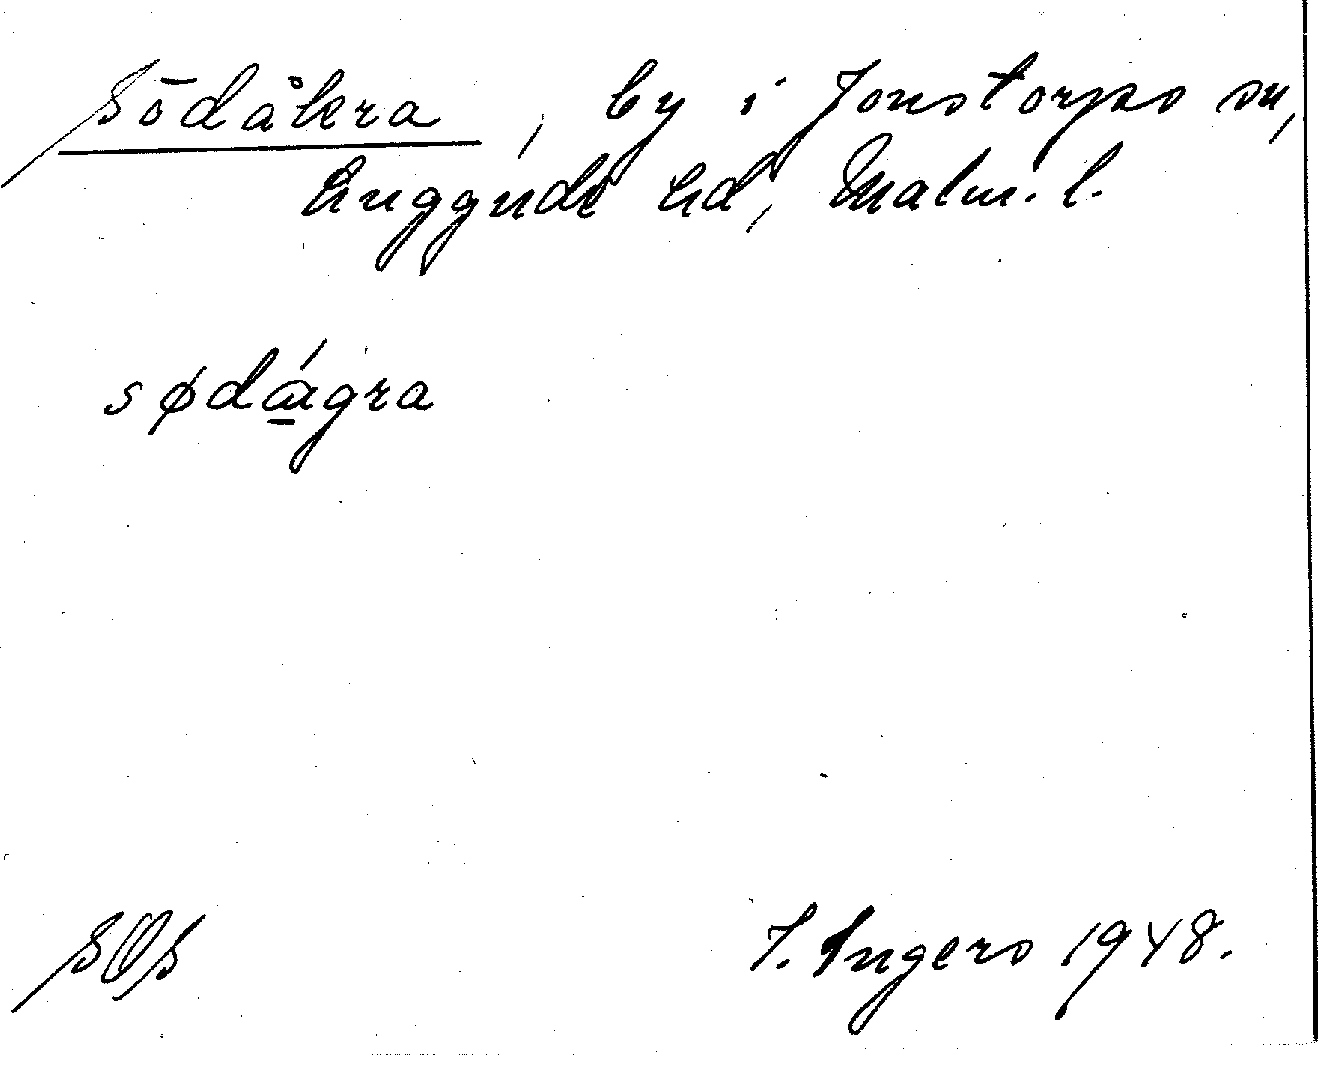 Södåkra, by i Jonstorps sn,
Luggude hd, Malm. l.
sødágra
SOS
I. Ingers 1948.